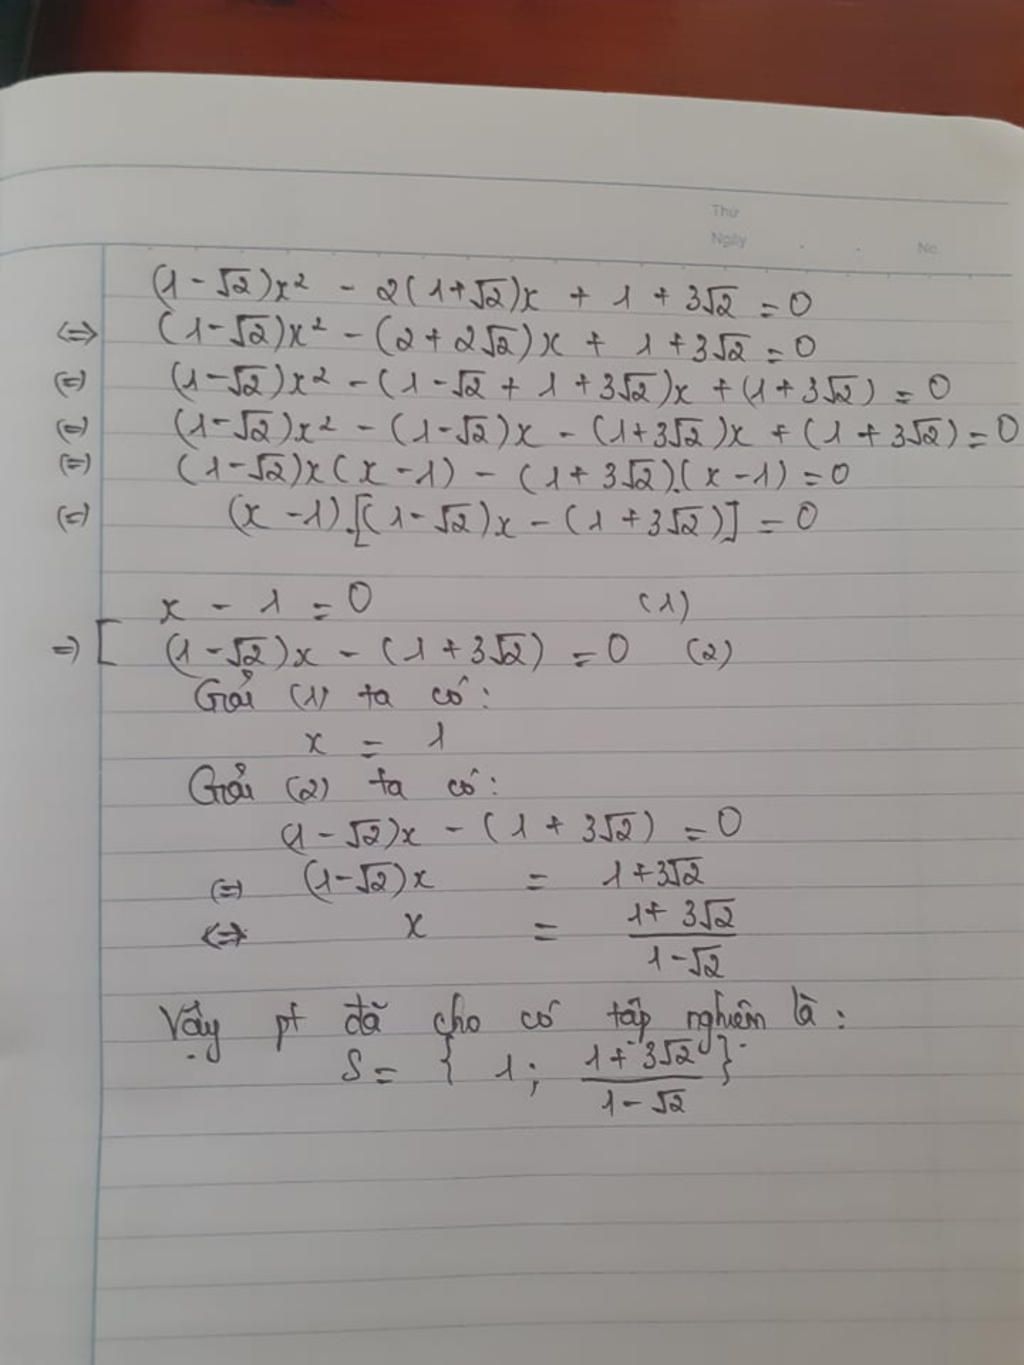 Thứ
Ngày . . No.
(1-√2)x² - 2(1+√2)x + 1 + 3√2 = 0
<=> (1-√2)x² - (2 + 2√2)x + 1 + 3√2 = 0
(=) (1-√2)x² - (1-√2 + 1 + 3√2)x + (1 + 3√2) = 0
(=) (1-√2)x² - (1-√2)x - (1+3√2)x + (1 + 3√2) = 0
(=) (1-√2)x(x-1) - (1+3√2).(x-1) = 0
(=) (x-1).[(1-√2)x - (1+3√2)] = 0
x - 1 = 0 (1)
=) [ (1-√2)x - (1+3√2) = 0 (2)
Giải (1) ta có:
x = 1
Giải (2) ta có:
(1-√2)x - (1 + 3√2) = 0
(=) (1-√2)x = 1+3√2
<=> x = \frac{1+3√2}{1-√2}
Vậy pt đã cho có tập nghiệm là:
S = { 1; \frac{1+3√2}{1-√2} }.